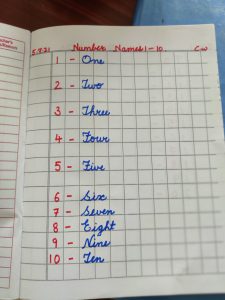 5.7.21 Number Names 1-10. C.W
1 - One
2 - Two
3 - Three
4 - Four
5 - Five
6 - Six
7 - Seven
8 - Eight
9 - Nine
10 - Ten